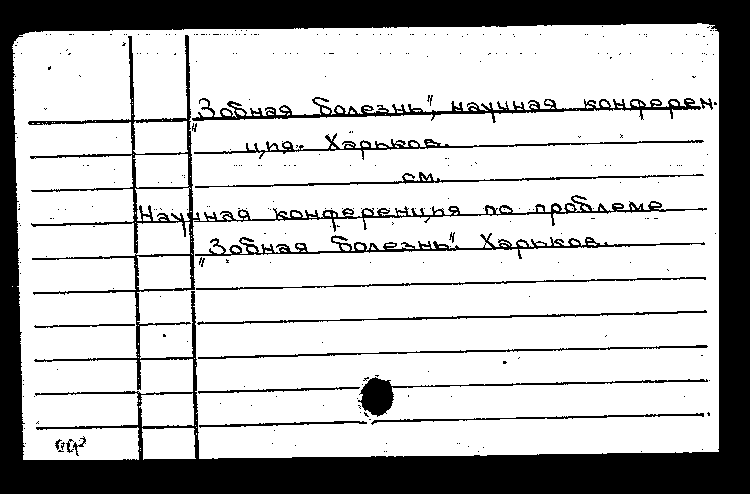 "Зобная болезнь", научная конферен-
ция. Харьков.
см.
Научная конференция по проблеме
"Зобная болезнь". Харьков.